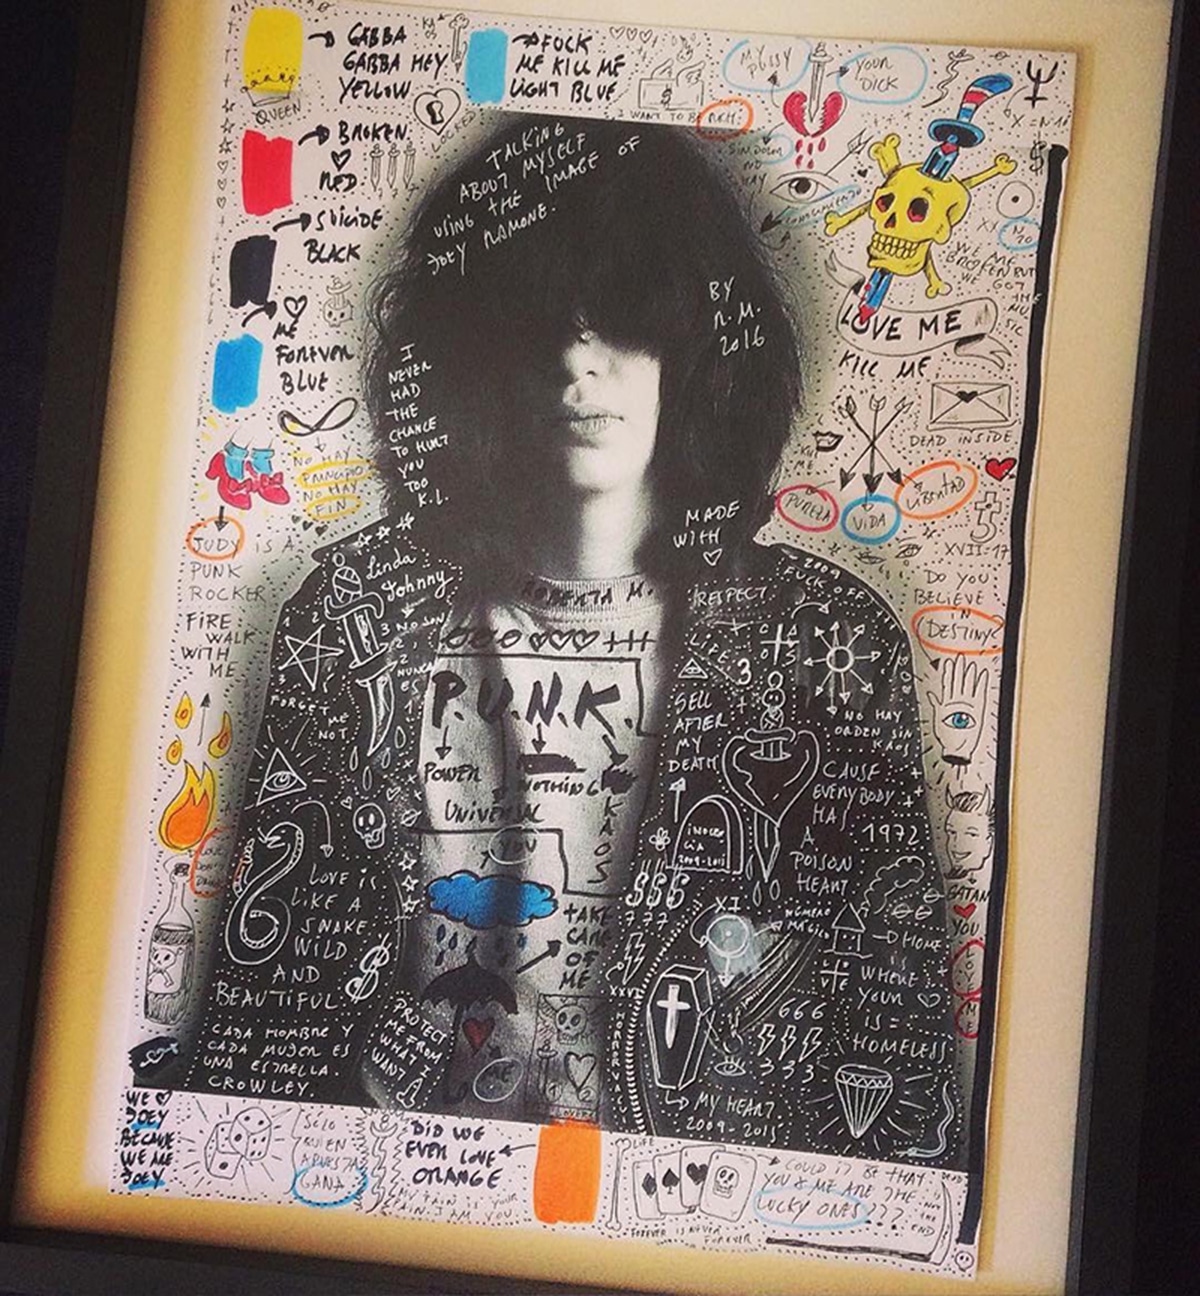 GABBA
GABBA HEY
YELLOW
QUEEN
FUCK
ME KILL ME
LIGHT BLUE
LOCKED
MY PUSSY
YOUR
DICK
I WANT TO BE
BROKEN
RED
SUICIDE
BLACK
ME
FOREVER
BLUE
TALKING
ABOUT MYSELF
USING THE IMAGE OF
JOEY RAMONE.
BY
R.M.
2016
I
NEVER
HAD
THE
CHANCE
TO HURT
YOU
TOO
K.L.
MADE
WITH
WE ARE
BROKEN BUT
WE GOT
THE
MU
SIC
LOVE ME
KILL ME
DEAD INSIDE
KILL
ME
PUREZA
VIDA
LIBERTAD
XVII=17
NO HAY
PRINCIPIO
NO HAY
FIN
JUDY IS A
PUNK
ROCKER
FIRE
WALK
WITH
ME
DO YOU
BELIEVE
IN
DESTINY?
Linda
Johnny
NO SON
NUNCA
ES
FORGET ME
NOT
ROBERTA M.
P.U.N.K.
POWER
NOTHING
UNIVERSAL
KAOS
YOU
TAKE
CARE
OF
ME
RESPECT
2009
FUCK OFF
LIFE
3
SELL
AFTER
MY
DEATH
NO HAY
ORDEN SIN
KAOS
CAUSE
EVERYBODY
HAS
A
POISON
HEART
1972
INOCEN
CIA
2009-2015
$$$
777
XXVI
XI
NÚMERO
MÁGICO
HOME
IS
WHERE
YOUR
IS =
HOMELESS
666
333
MY HEART
2009-2015
SATAN
YOU
LOVE
ME
LOVE IS
LIKE A
SNAKE
WILD
AND
BEAUTIFUL
CADA HOMBRE Y
CADA MUJER ES
UNA ESTRELLA.
CROWLEY.
PROTECT
ME FROM
WHAT I
WANT
ME
WE
JOEY
BECAUSE
WE ARE
JOEY
SOLO
QUIEN
APUESTA
GANA
DID WE
EVER LOVE
ORANGE
MY PAIN IS YOUR
PAIN I AM YOU.
LIFE
FOREVER IS NEVER
FOREVER
COULD IT BE THAT
YOU & ME ARE THE
LUCKY ONES???
DEAD
NOT
THE
END